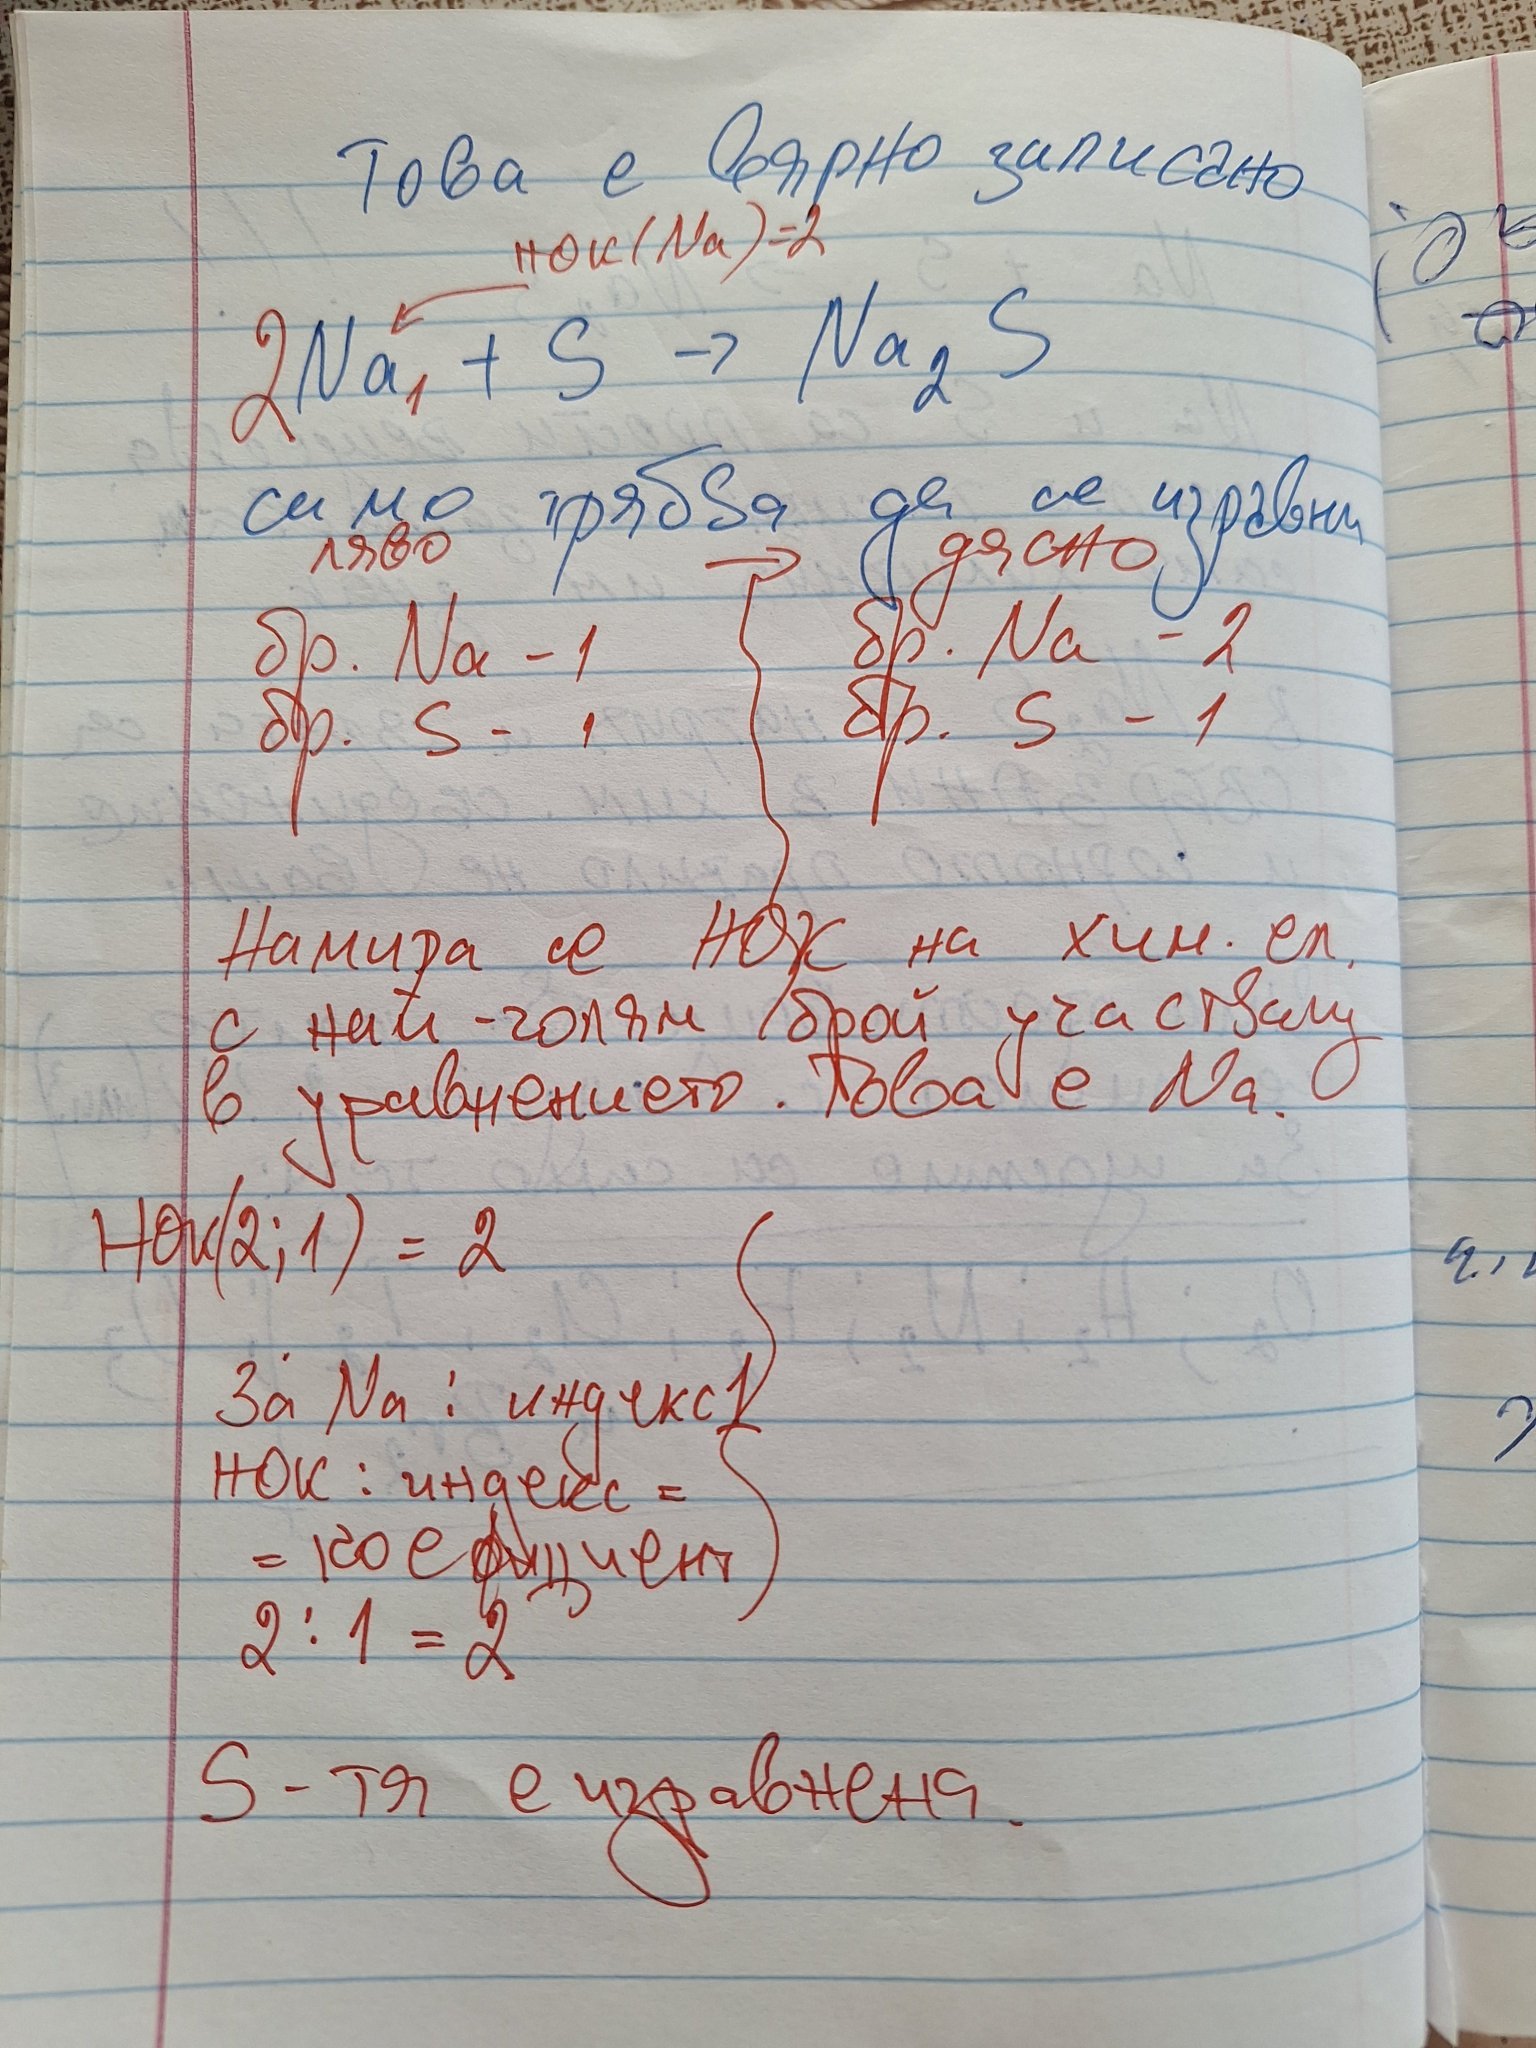 Това е вярно записано
НОК(Na)=2
2Na₁ + S → Na₂S
само трябва да се изравни
ляво → дясно
бр. Na - 1 бр. Na - 2
бр. S - 1 бр. S - 1
Намира се НОК на хим. ел.
с най-голям брой участващ
в уравнението. Това е Na.
НОК(2;1) = 2
За Na: индекс 1
НОК : индекс =
= коефициент
2 : 1 = 2
S - тя е изравнена.